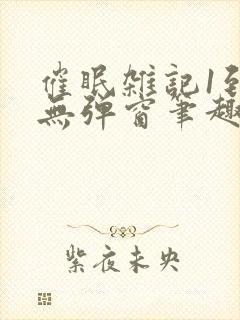 催眠雑記1到
無弹窗筆趣
紫夜未央